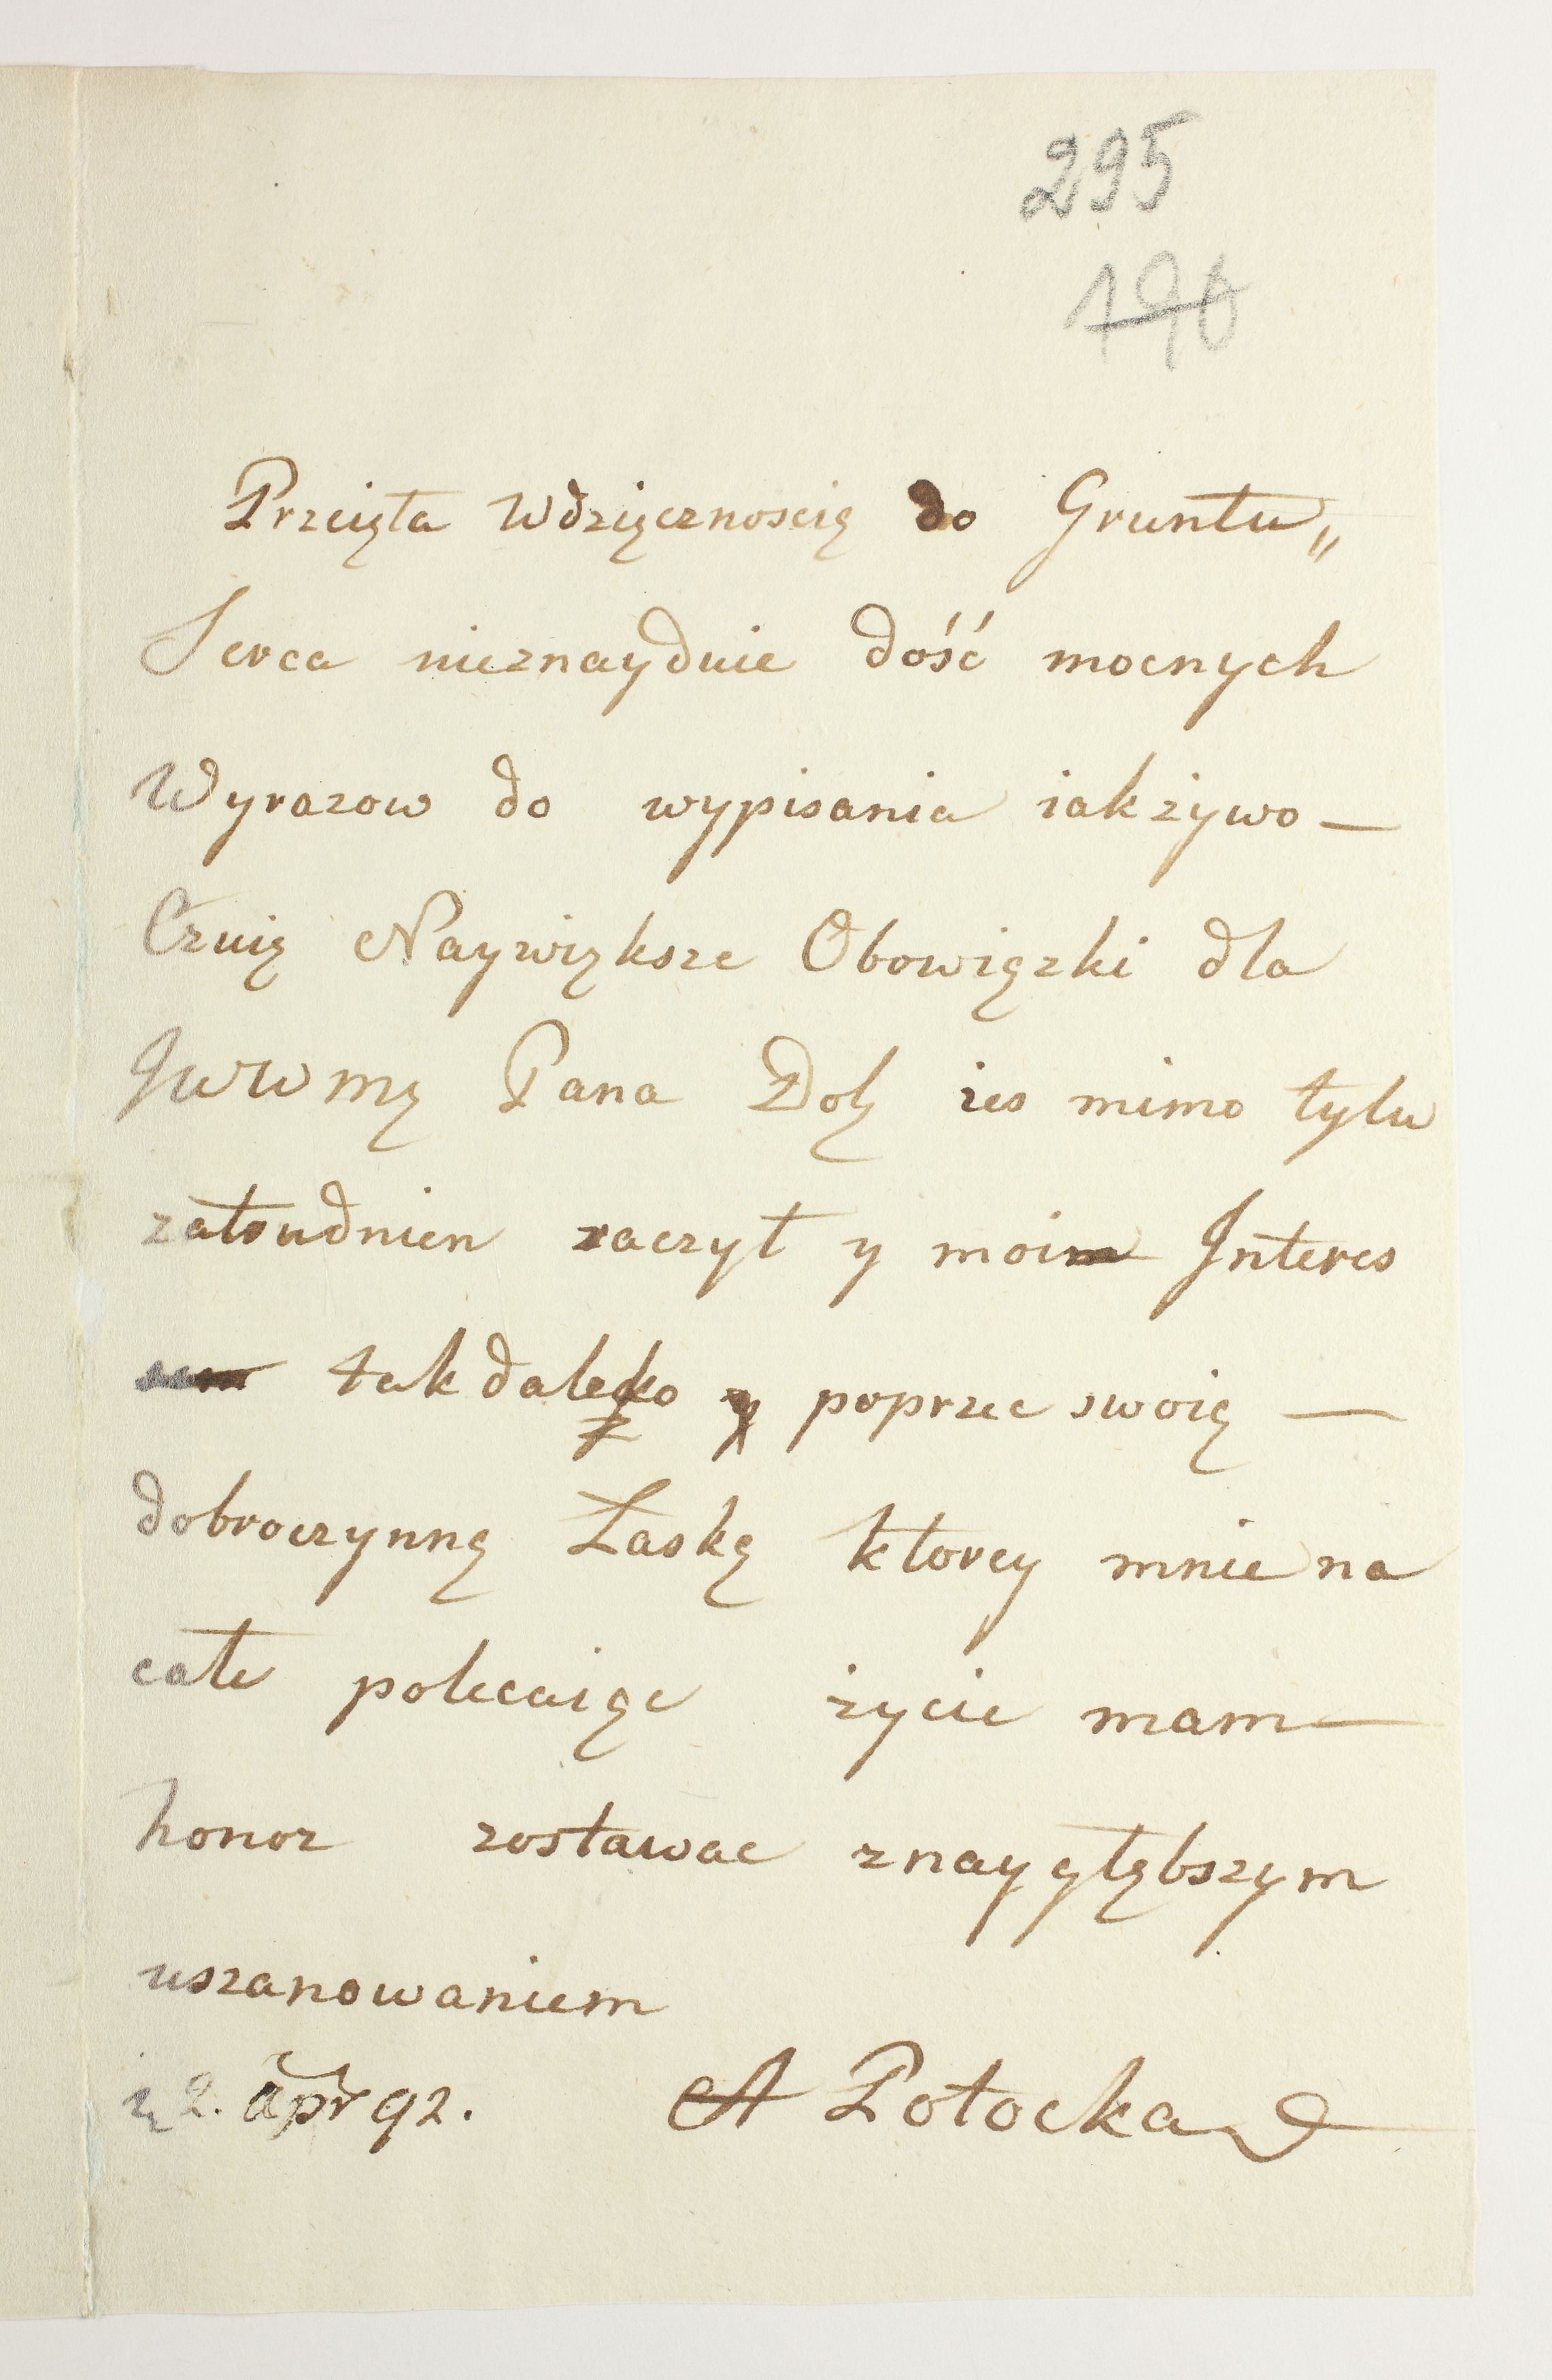 295
190
Przeięta Wdzięcznoscią do Gruntu„
Serca nieznayduie dość mocnych
Wyrazow do wypisania iak żywo —
Czuię Naywiększe Obowiązki dla
JWWmę Pana Dob ies mimo tylu
zatrudnien raczył y moim Interes
tak daleko poprzec swoią —
dobroczynną Łaską ktorey mnie na
całe polecaiąc życie mam —
honor zostawac znaygłębszym
uszanowaniem
2. apr 92. A Potocka